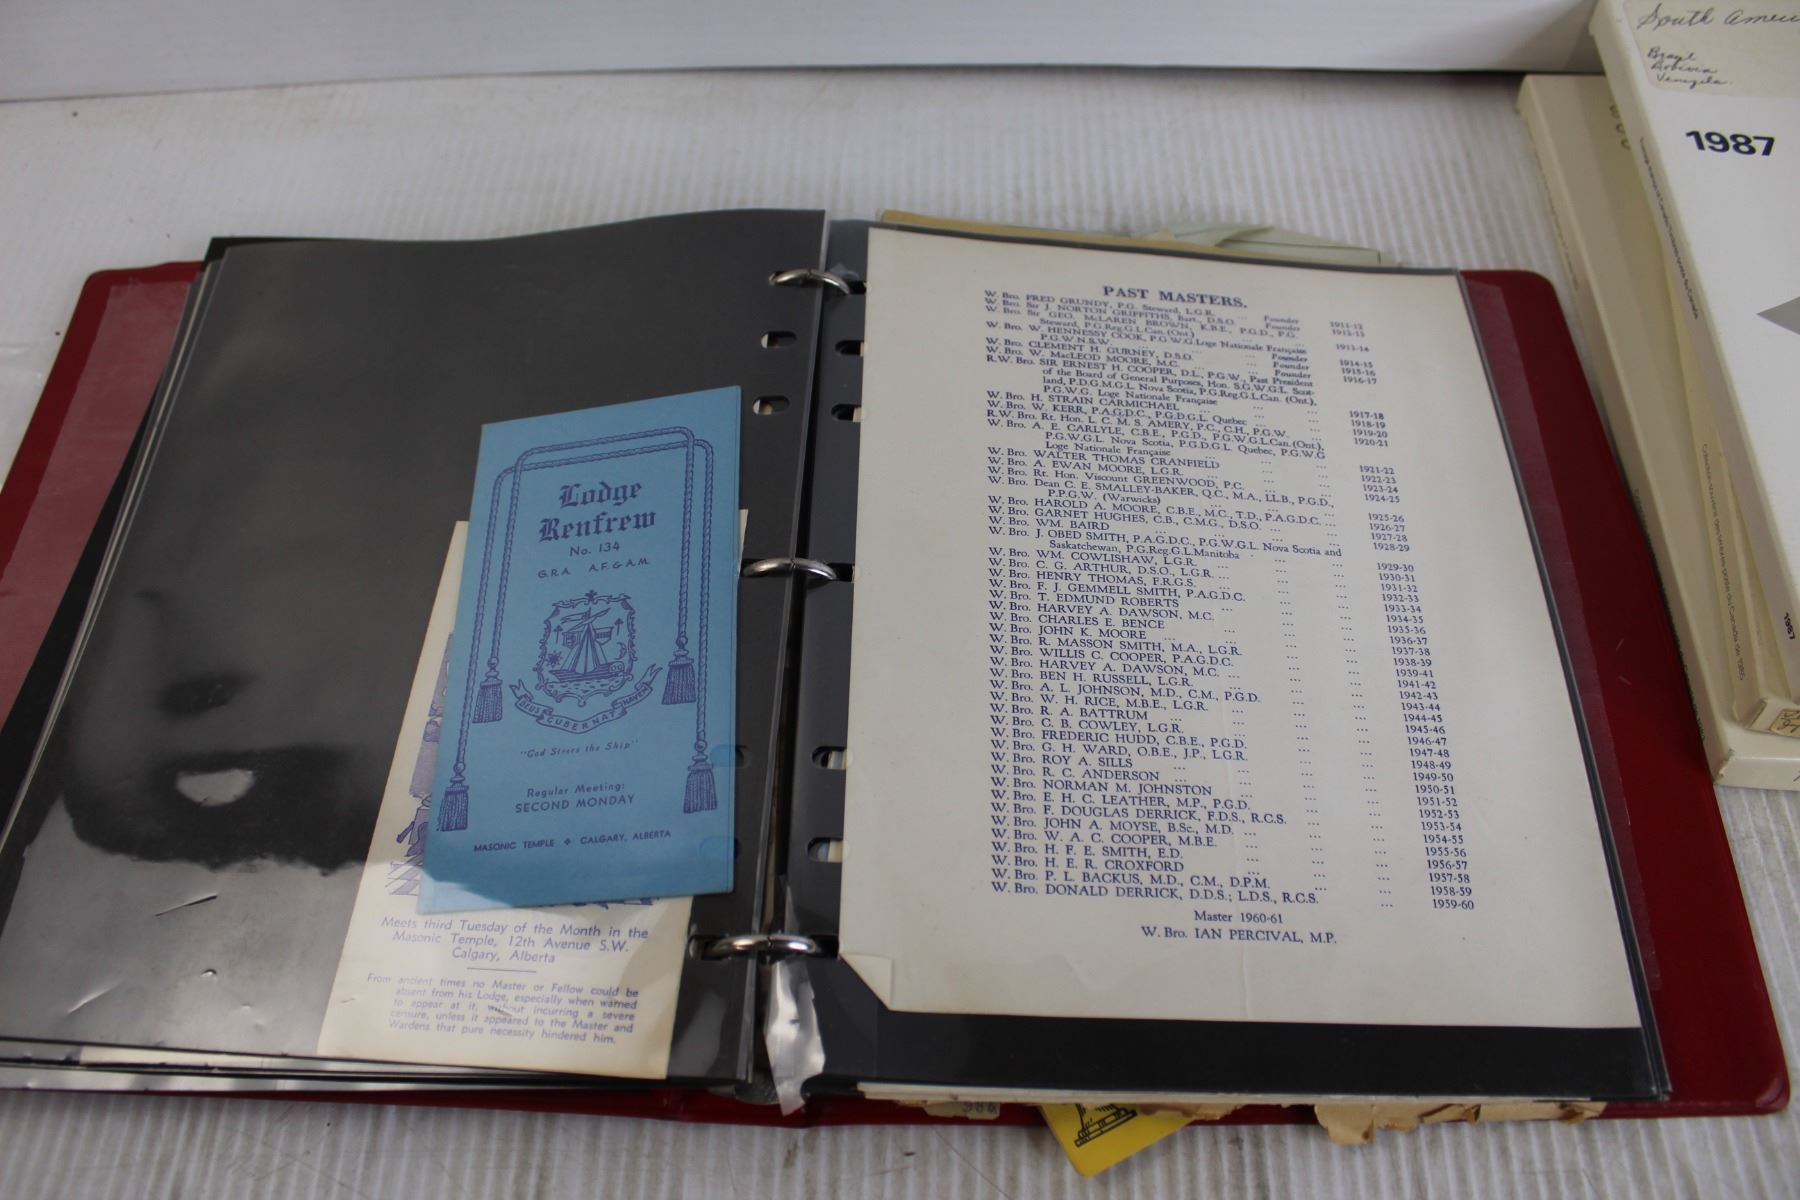 Lodge
Renfrew
No. 134
G.R.A. A.F. & A.M.
DEUS GUBERNAT NAVEM
"God Steers the Ship"
Regular Meeting:
SECOND MONDAY
MASONIC TEMPLE ❖ CALGARY, ALBERTA
Meets third Tuesday of the Month in the
Masonic Temple, 12th Avenue S.W.
Calgary, Alberta
From ancient times no Master or Fellow could be
absent from his Lodge, especially when warned
to appear at it, without incurring a severe
censure, unless it appeared to the Master and
Wardens that pure necessity hindered him.
PAST MASTERS.
W. Bro. FRED GRUNDY, P.G. Steward, L.G.R. ... Founder 1911-12
W. Bro. Sir J. NORTON GRIFFITHS, Bart., D.S.O. ... Founder 1912-13
W. Bro. Sir GEO. McLAREN BROWN, K.B.E., P.G.D., P.G.
Steward, P.G.Reg.G.L.Can.(Ont.) Founder 1913-14
W. Bro. W. HENNESSY COOK, P.G.W.G.Loge Nationale Française
P.G.W.N.S.W. ... ... Founder 1914-15
W. Bro. CLEMENT H. GURNEY, D.S.O. ... Founder 1915-16
W. Bro. W. MacLEOD MOORE, M.C. ... Founder 1916-17
R.W. Bro. SIR ERNEST H. COOPER, D.L., P.G.W., Past President
of the Board of General Purposes, Hon. S.G.W.G.L. Scot-
land, P.D.G.M.G.L. Nova Scotia, P.G.Reg.G.L.Can. (Ont.),
P.G.W.G. Loge Nationale Française ... ... 1917-18
W. Bro. H. STRAIN CARMICHAEL ... ... 1918-19
W. Bro. W. KERR, P.A.G.D.C., P.G.D.G.L. Quebec ... ... 1919-20
R.W. Bro. Rt. Hon. L. C. M. S. AMERY, P.C., C.H., P.G.W. ... 1920-21
W. Bro. A. E. CARLYLE, C.B.E., P.G.D., P.G.W.G.L.Can.(Ont.),
P.G.W.G.L. Nova Scotia, P.G.D.G.L. Quebec, P.G.W.G
Loge Nationale Française ... ... 1921-22
W. Bro. WALTER THOMAS CRANFIELD ... ... 1922-23
W. Bro. A. EWAN MOORE, L.G.R. ... ... 1923-24
W. Bro. Rt. Hon. Viscount GREENWOOD, P.C. ... ... 1924-25
W. Bro. Dean C. E. SMALLEY-BAKER, Q.C., M.A., LL.B., P.G.D.,
P.P.G.W. (Warwicks) ... ... 1925-26
W. Bro. HAROLD A. MOORE, C.B.E., M.C., T.D., P.A.G.D.C. ... 1926-27
W. Bro. GARNET HUGHES, C.B., C.M.G., D.S.O. ... ... 1927-28
W. Bro. WM. BAIRD ... ... ... 1928-29
W. Bro. J. OBED SMITH, P.A.G.D.C., P.G.W.G.L. Nova Scotia and
Saskatchewan, P.G.Reg.G.L.Manitoba ... ... 1929-30
W. Bro. WM. COWLISHAW, L.G.R. ... ... 1930-31
W. Bro. C. G. ARTHUR, D.S.O., L.G.R. ... ... ... 1931-32
W. Bro. HENRY THOMAS, F.R.G.S. ... ... ... 1932-33
W. Bro. F. J. GEMMELL SMITH, P.A.G.D.C. ... ... 1933-34
W. Bro. T. EDMUND ROBERTS ... ... 1934-35
W. Bro. HARVEY A. DAWSON, M.C. ... ... 1935-36
W. Bro. CHARLES E. BENCE ... ... ... 1936-37
W. Bro. JOHN K. MOORE ... ... ... 1937-38
W. Bro. R. MASSON SMITH, M.A., L.G.R. ... ... 1938-39
W. Bro. WILLIS C. COOPER, P.A.G.D.C. ... ... 1939-41
W. Bro. HARVEY A. DAWSON, M.C. ... ... ... 1941-42
W. Bro. BEN H. RUSSELL, L.G.R. ... ... ... 1942-43
W. Bro. A. L. JOHNSON, M.D., C.M., P.G.D. ... ... 1943-44
W. Bro. W. H. RICE, M.B.E., L.G.R. ... ... 1944-45
W. Bro. R. A. BATTRUM ... ... ... 1945-46
W. Bro. C. B. COWLEY, L.G.R. ... ... ... 1946-47
W. Bro. FREDERIC HUDD, C.B.E., P.G.D. ... ... 1947-48
W. Bro. G. H. WARD, O.B.E., J.P., L.G.R. ... ... 1948-49
W. Bro. ROY A. SILLS ... ... ... 1949-50
W. Bro. R. C. ANDERSON ... ... ... 1950-51
W. Bro. NORMAN M. JOHNSTON ... ... 1951-52
W. Bro. E. H. C. LEATHER, M.P., P.G.D. ... ... 1952-53
W. Bro. F. DOUGLAS DERRICK, F.D.S., R.C.S. ... ... 1953-54
W. Bro. JOHN A. MOYSE, B.Sc., M.D. ... ... ... 1954-55
W. Bro. W. A. C. COOPER, M.B.E. ... ... ... 1955-56
W. Bro. H. F. E. SMITH, E.D. ... ... 1956-57
W. Bro. H. E. R. CROXFORD ... ... 1957-58
W. Bro. P. L. BACKUS, M.D., C.M., D.P.M. ... ... 1958-59
W. Bro. DONALD DERRICK, D.D.S.; L.D.S., R.C.S. ... 1959-60
Master 1960-61
W. Bro. IAN PERCIVAL, M.P.
986
South
Brazil
1987
1987